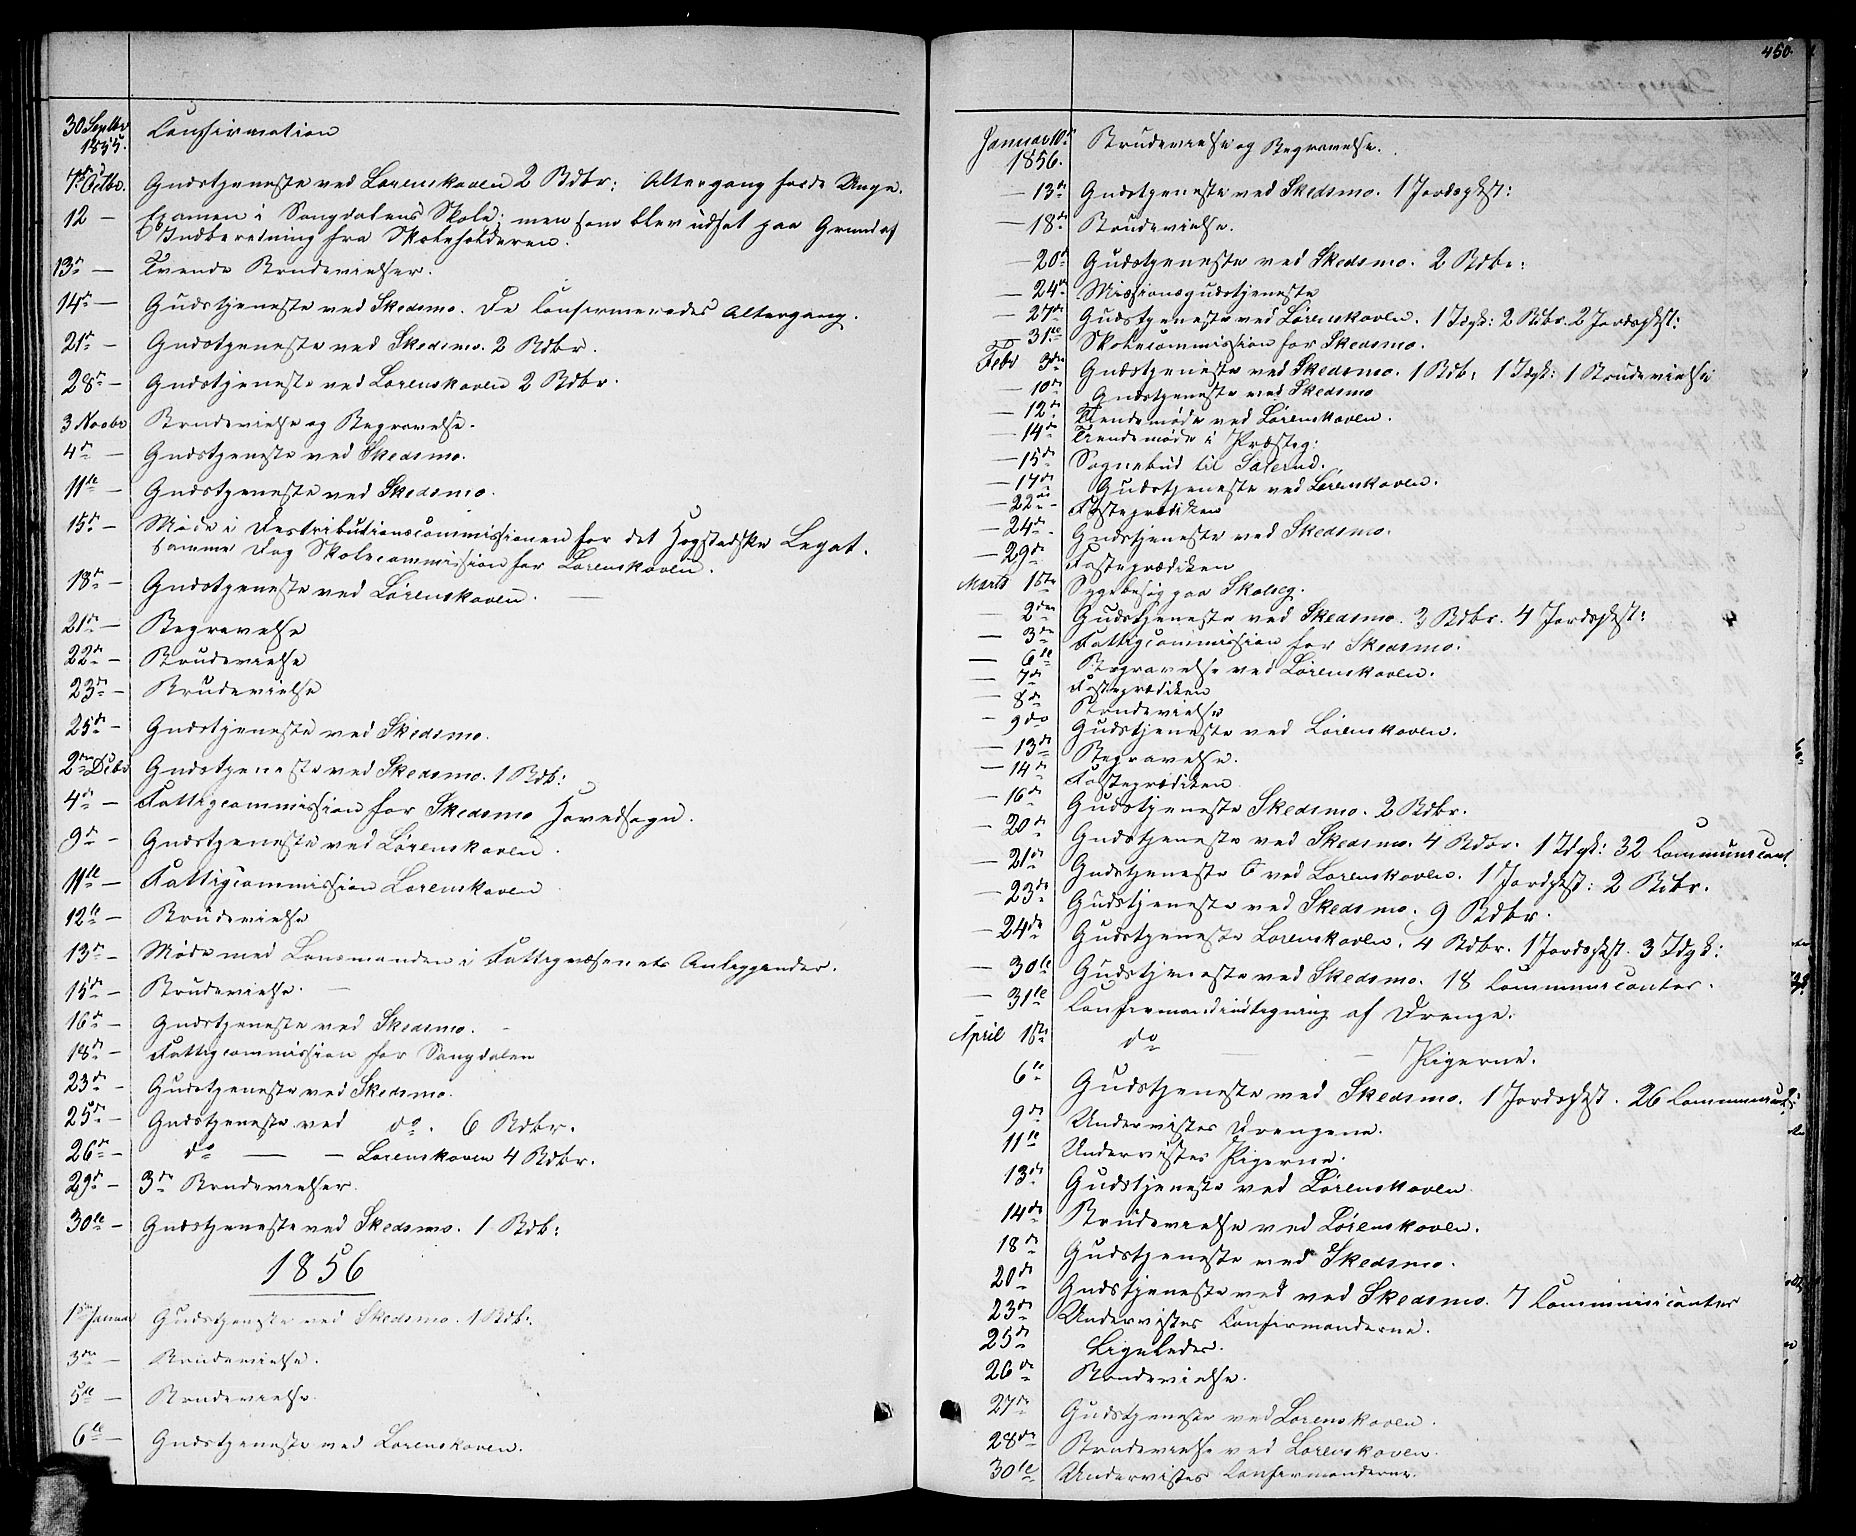 30 Septbr 1855. Confirmation
7de Octbr. Gudstjeneste ved Lørenskoven 2 Bdbr: Altergang for de Unge.
12 — Examen i Sangdalens Skole, men som blev udsat paa Grund af
Indberetning fra Skoleholderen.
13de — Tvende Brudevielser.
14de — Gudstjeneste ved Skedsmo. De Confirmeredes Altergang.
21de — Gudstjeneste ved Skedsmo. 2 Bdbr.
28de — Gudstjeneste ved Lørenskoven 2 Bdbr.
3 Novbr Brudevielse og Begravelse.
4de — Gudstjeneste ved Skedsmo.
11te — Gudstjeneste ved Skedsmo.
15de — Møde i Destributionscommissionen for det Hogstadske Legat.
Samme Dag Skolecommission for Lørenskoven.
18de — Gudstjeneste ved Lørenskoven. —
21de — Begravelse
22de — Brudevielse
23de — Brudevielse
25de — Gudstjeneste ved Skedsmo.
2den Debr Gudstjeneste ved Skedsmo. 1 Bdb:
4de — Fattigcommission for Skedsmo Hovedsogn.
9de — Gudstjeneste ved Lørenskoven.
11te — Fattigcommission Lørenskoven
12te — Brudevielse
13de — Møde med Lensmanden i Fattigvæsenets Anliggender.
15de — Brudevielse. —
16de — Gudstjeneste ved Skedsmo. —
18de — Fattigcommission for Sangdalen
23de — Gudstjeneste ved Skedsmo.
25de — Gudstjeneste ved do. 6 Bdbr.
26de — do — — Lørenskoven 4 Bdbr.
29de — 3de Brudevielser.
30te — Gudstjeneste ved Skedsmo. 1 Bdb:
1856
1ste Januar Gudstjeneste ved Skedsmo. 1 Bdb:
3die — Brudevielse.
5te — Brudevielse.
6te — Gudstjeneste ved Lørenskoven.
450.
Januar 10de 1856. Brudevielse og Begravelse.
— 13de Gudstjeneste ved Skedsmo. 1 Jordspkst:
— 18de Brudevielse.
— 20de Gudstjeneste ved Skedsmo. 2 Bdbr:
— 24de Missionsgudstjeneste
— 27de Gudstjeneste ved Lørenskoven. 1 Idgk: 2 Bdbr. 2 Jordspkst:
— 31te Skolecommission for Skedsmo.
Febr 3die Gudstjeneste ved Skedsmo. 1 Bdb: 1 Idgk: 1 Brudevielse
— 10de Gudstjeneste ved Skedsmo
— 12te Tiendemøde ved Lørenskoven.
— 14de Tiendemøde i Præsteg:
— 15de Sognebud til Salerud.
— 17de Gudstjeneste ved Lørenskoven.
— 22de — Fasteprædiken
— 24de Gudstjeneste ved Skedsmo.
— 29de Fasteprædiken
Marts 1ste Sygebesøg paa Skolseg.
— 2den Gudstjeneste ved Skedsmo. 3 Bdbr. 4 Jordspkst:
— 3die Fattigcommission for Skedsmo.
— 6te Begravelse ved Lørenskoven.
— 7de Fasteprædiken
— 8de Brudevielse
— 9de Gudstjeneste ved Lørenskoven.
— 13de Begravelse.
— 14de Fasteprædiken
— 16de Gudstjeneste Skedsmo. 2 Bdbr.
— 20de Gudstjeneste ved Skedsmo. 4 Bdbr. 1 Idgk: 32 Communicant
— 21de Gudstjeneste ved Lørenskoven. 1 Jordpkst: 2 Bdbr.
— 23de Gudstjeneste ved Skedsmo. 9 Bdbr.
— 24de Gudstjeneste Lørenskoven. 4 Bdbr. 1 Jordspkst. 3 Idgk:
— 30te Gudstjeneste ved Skedsmo. 18 Communicanter.
— 31te Confirmandindtegning af Drenge.
April 1ste do — Pigerne.
6te Gudstjeneste ved Skedsmo. 1 Jordspkst. 26 Communicant:
9de Undervistes Drengene.
11te Undervistes Pigerne.
13de Gudstjeneste ved Lørenskoven
14de Brudevielse ved Lørenskoven.
18de Gudstjeneste ved Skedsmo.
20de Gudstjeneste ved ved Skedsmo. 7 Communicanter
23de Undervistes Confirmanderne.
25de Ligeledes.
26de Brudevielse.
27de Gudstjeneste ved Lørenskoven.
28de Brudevielse ved Lørenskoven.
30te Undervistes Confirmanderne.